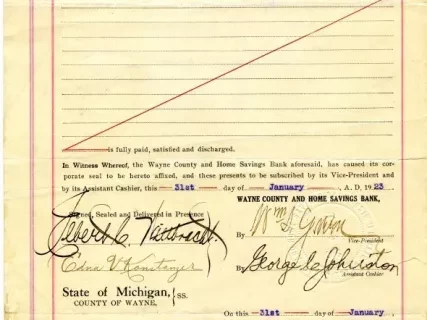 is fully paid, satisfied and discharged.
In Witness Whereof, the Wayne County and Home Savings Bank aforesaid, has caused its cor-
porate seal to be hereto affixed, and these presents to be subscribed by its Vice-President and
by its Assistant Cashier, this —31st— day of —January—, A. D. 1923.
WAYNE COUNTY AND HOME SAVINGS BANK,
Signed, Sealed and Delivered in Presence
By Wm
Vice-President
Edna V.
By George Johnston
Assistant Cashier
State of Michigan, } ss.
COUNTY OF WAYNE,
On this —31st— day of —January,